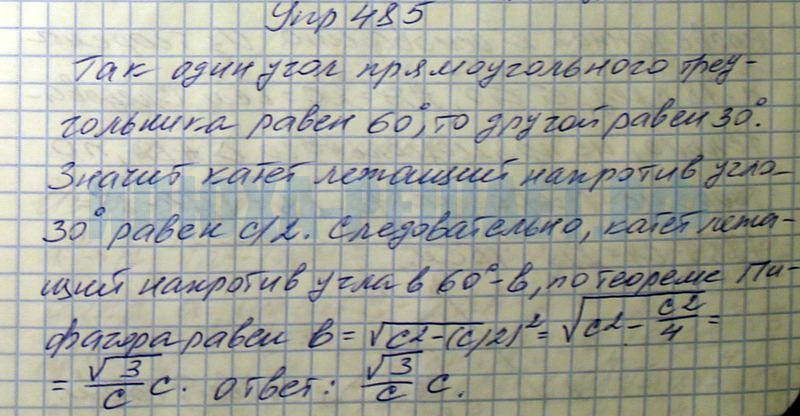 Упр 485
Так один угол прямоугольного треу-
гольника равен 60°, то другой равен 30°.
Значит катет лежащий напротив угла
30° равен c/2. Следовательно, катет лежа-
щий напротив угла в 60° - в, по теореме Пи-
фагора равен в = √c2-(c/2)² = √c2 - c2/4 =
= √3/c c. ответ: √3/c c.